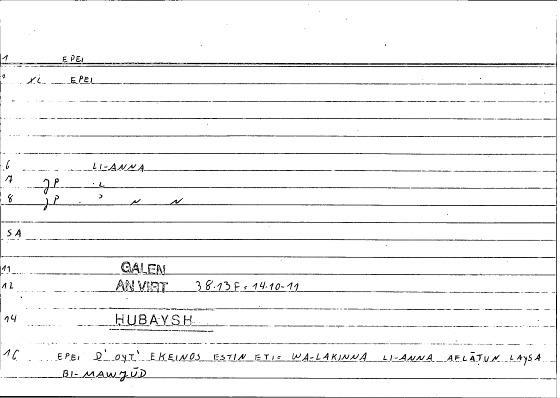 1 EPEI
XL EPEI
6 LI-ANNA
7 JP
8 JP
SA
11 GALEN
12 AN VIRT 38.13F = 14.10-11
14 HUBAYSH
16 EPEI D' OYT' EKEINOS ESTIN ETI = WA-LAKINNA LI-ANNA AFLĀṬUN LAYSA
BI-MAWJŪD